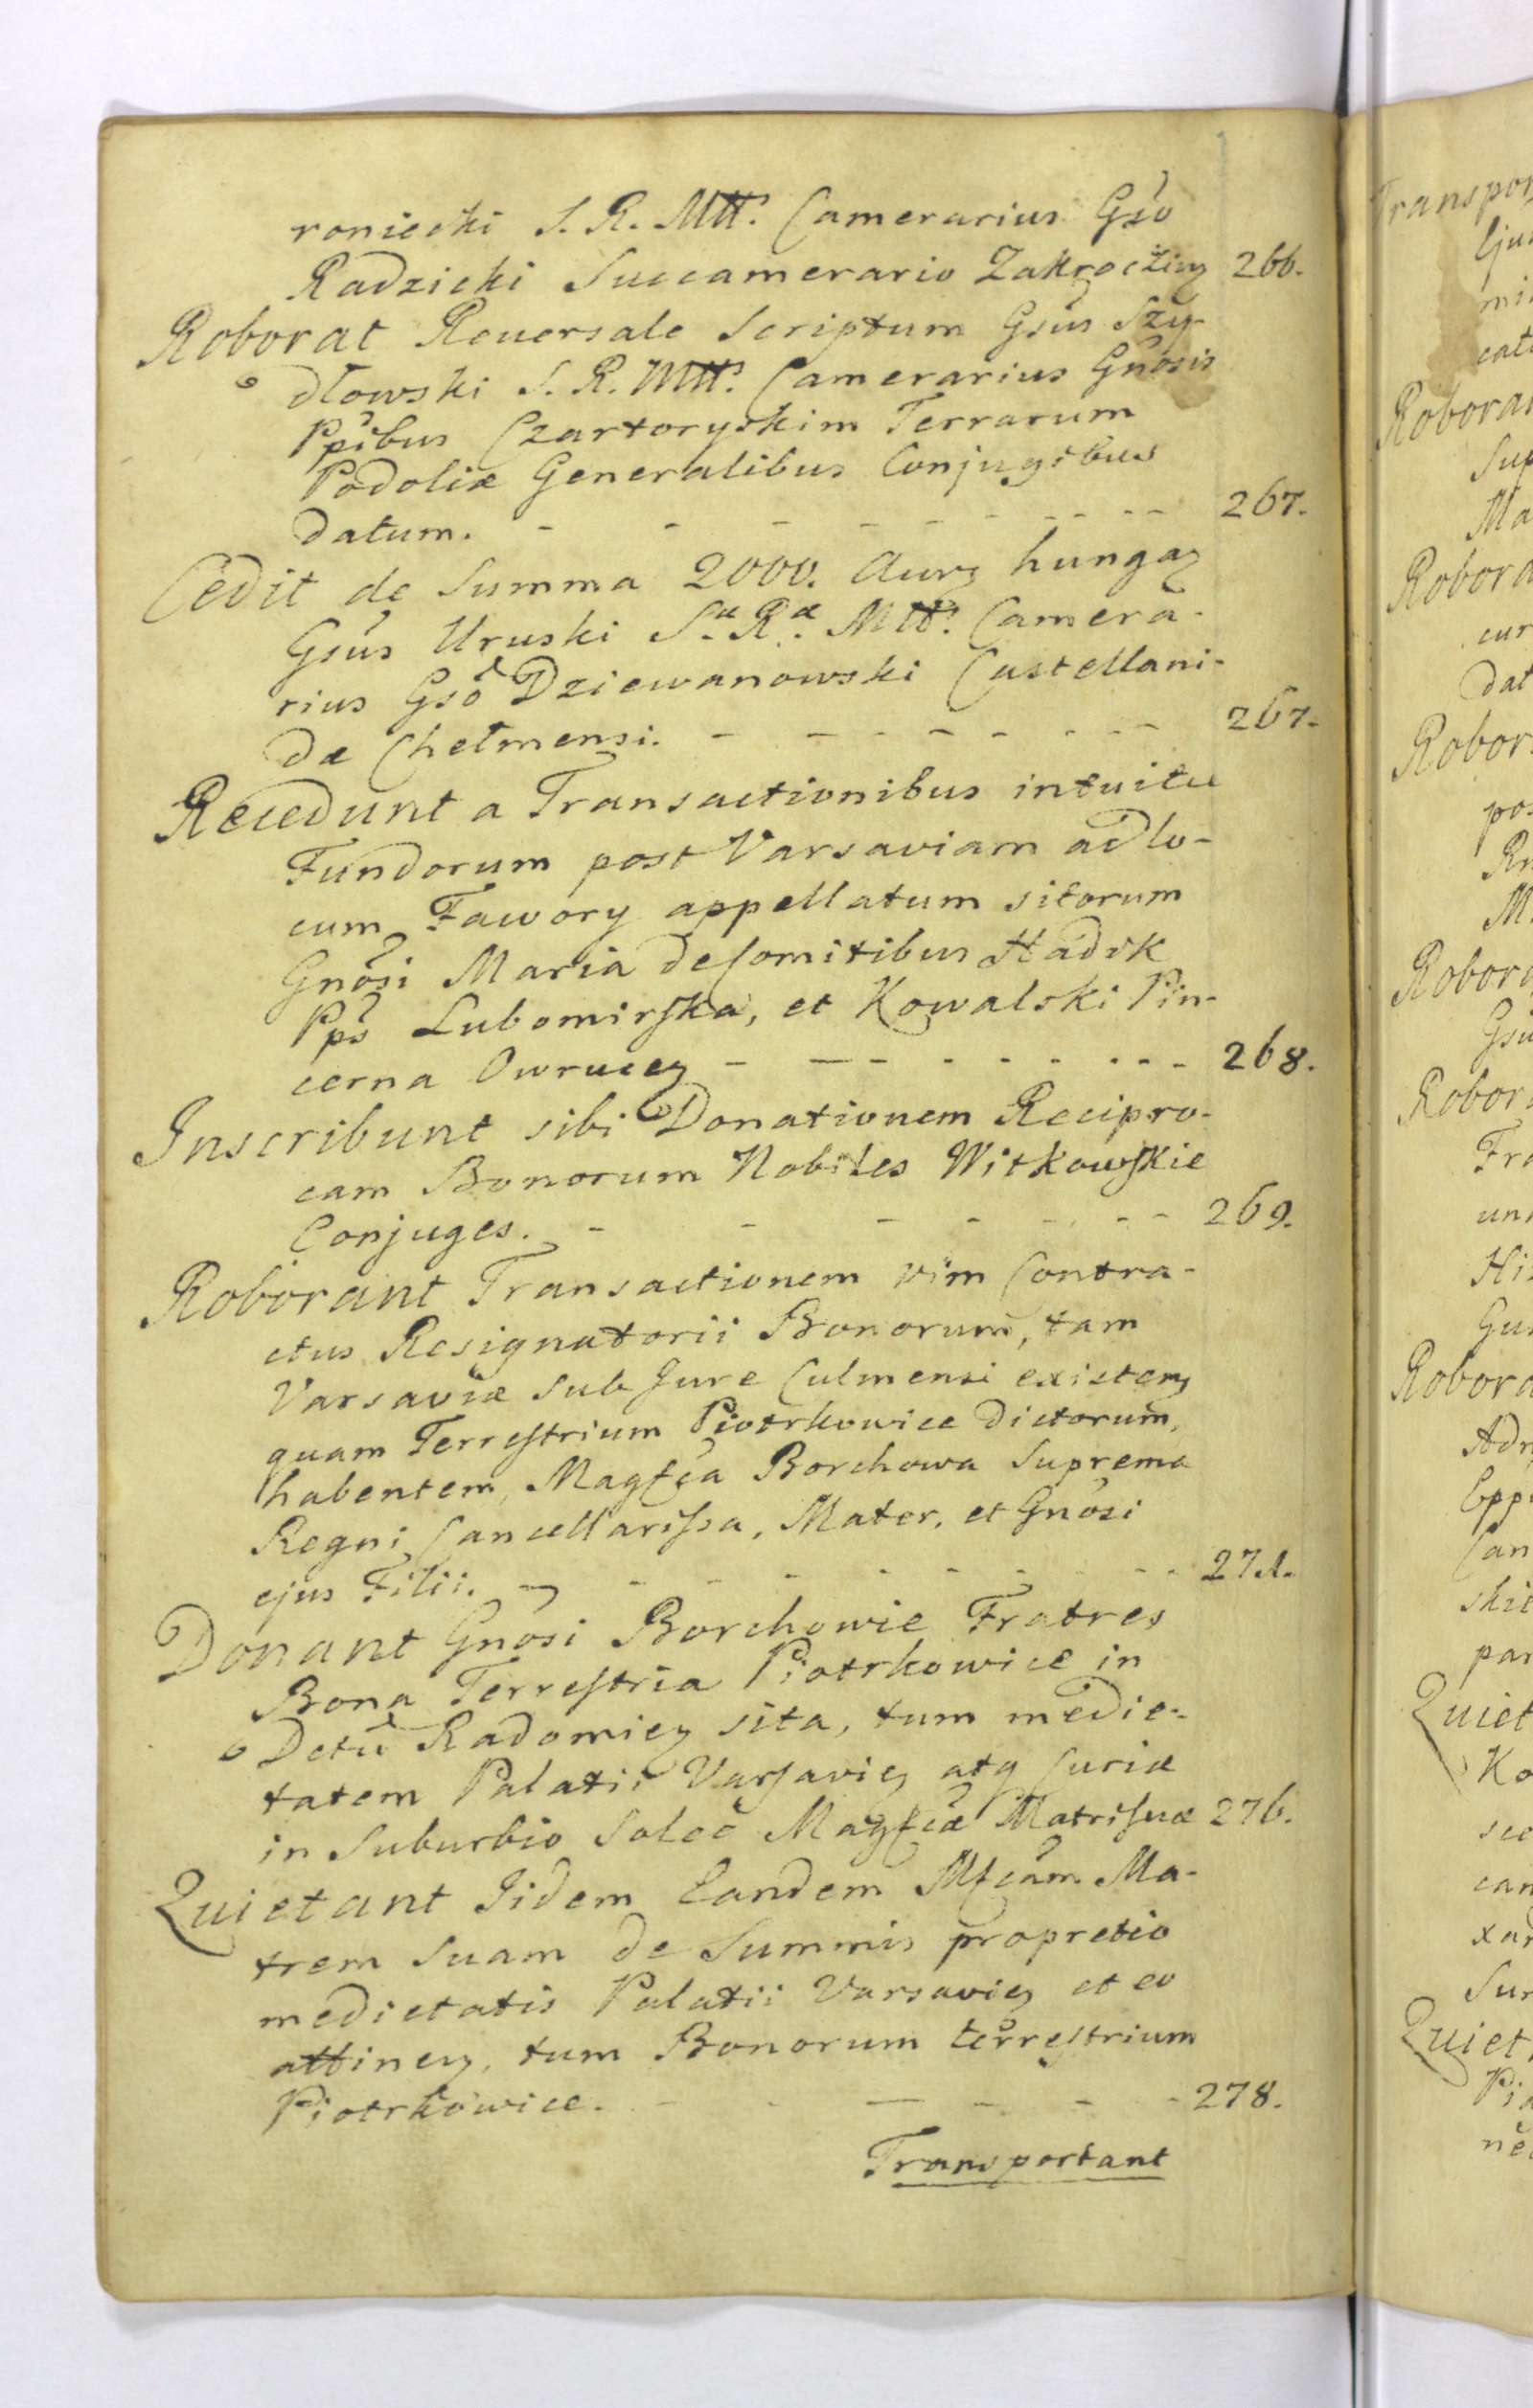 roniecki S. R. Mtt. Camerarius Gso
Radzicki Succamerario Zakroczim 266.
Roborat Reuersale Scriptum Gsus Szy-
dłowski S. R. Mtt. Camerarius Gnosis
Ppibus Czartoryskim Terrarum
Podoliæ Generalibus Conjugibus
datum. - - - - - - - - 267.
Cedit de Summa 2000. Aurz hungaz
Gsus Uruski Sæ. Ræ. Mtt. Camera-
rius Gso Dziewanowski Castellani-
dæ Chełmensi. - - - - - - - 267.
Recedunt a Transactionibus intuitu
Fundorum post Varsaviam ad lo-
cum Fawory appellatum sitorum
Gnosi Maria de Comitibus Hadik
Pps Lubomirska, et Kowalski Pin-
cerna Owrucez - - - - - - - - 268.
Inscribunt sibi Donationem Recipro-
cam Bonorum Nobiles Witkowskie
Conjuges. - - - - - - - 269.
Roborant Transactionem vim Contra-
ctus Resignatorii Bonorum, tam
Varsaviæ sub Jure Culmensi existenz
quam Terrestrium Piotrkowice dictorum,
habentem, Magfca Borchowa Suprema
Regni Cancellarissa, Mater, et Gnosi
ejus Filii. - - - - - - - - 271.
Donant Gnosi Borchowie Fratres
Bona Terrestria Piotrkowice in
Dctu Radomiez sita, tum medie-
tatem Palatii Varsaviez atq Curiæ
in Suburbio Solec Magfcæ Matri suæ 276.
Quietant Iidem Eandem Mfcam Ma-
trem Suam de Summis pro pretio
medietatis Palatii Varsaviez et eo
attinez, tum Bonorum terrestrium
Piotrkowice. - - - - - - 278.
Transportant
Transpor
mi
cat
Robora
Sup
Ma
Robora
cur
dat
Robor
pos
M.
Robora
Gsu
Robora
Fra
un
Hi
Robora
Adm
Can
skie
par
Quiet
Ko
see
can
xar
Sur
Quiet